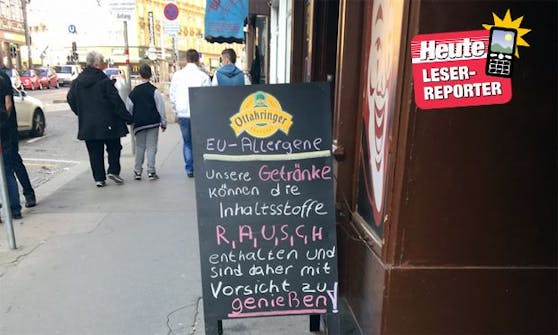 Ottakringer
EU-Allergene
Unsere Getränke
können die
Inhaltsstoffe
R,A,U,S,C,H
enthalten und
sind daher mit
Vorsicht zu
genießen!
Heute
LESER-
REPORTER